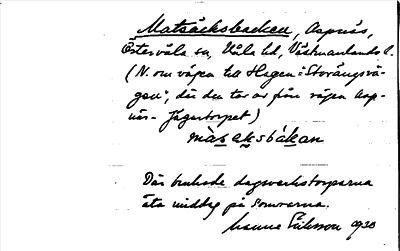 Matsäcksbacken, Aspnäs,
Östervåla sn, Våla hd, Västmanlands l.
(N. om vägen till Hagen: "Storängsvä-
gen", där den tar av från vägen Asp-
näs - Jägartorpet)
màt saksbákan
Där brukade dagsverkstorparna
äta middag på somrarna.
Hanna Eriksson 1930